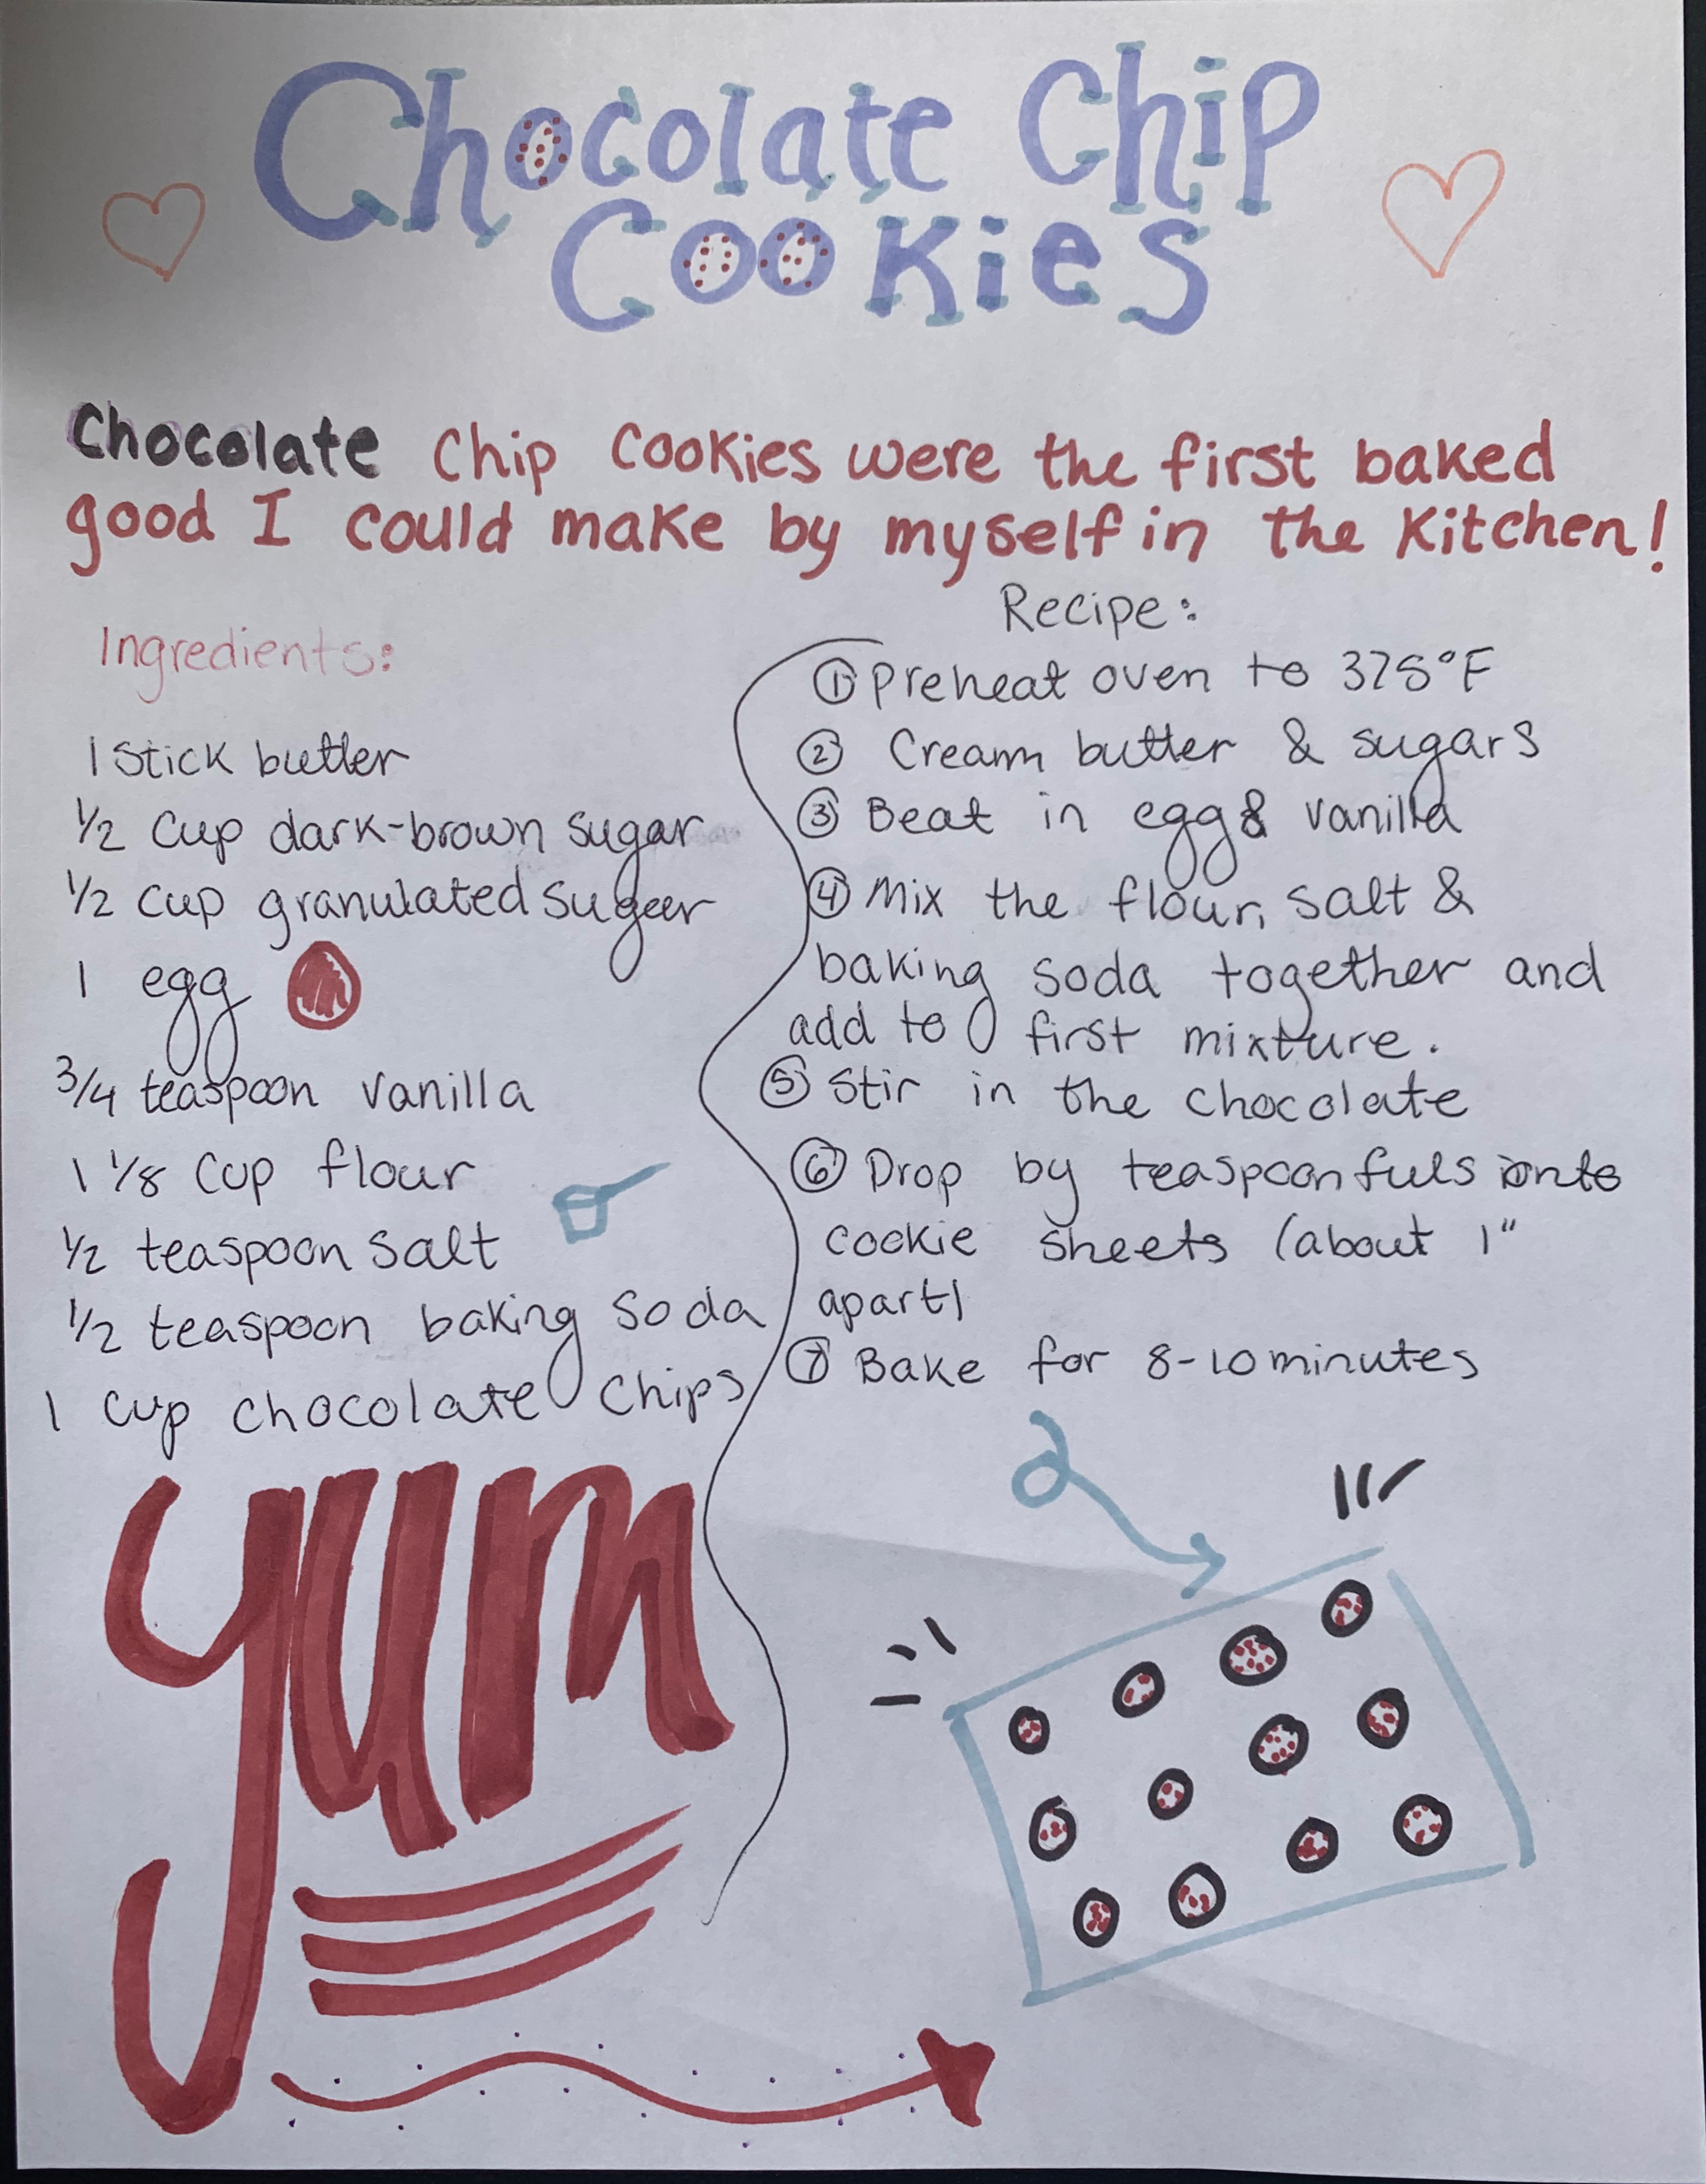 Chocolate Chip
Cookies
Chocolate Chip Cookies were the first baked
good I could make by myself in the kitchen!
Ingredients:
1 stick butter
1/2 cup dark-brown sugar
1/2 cup granulated sugar
1 egg
3/4 teaspoon vanilla
1 1/8 cup flour
1/2 teaspoon salt
1/2 teaspoon baking soda
1 cup chocolate chips
yum
Recipe:
① Preheat oven to 375°F
② Cream butter & sugars
③ Beat in egg & vanilla
④ Mix the flour, salt &
baking soda together and
add to first mixture.
⑤ Stir in the chocolate
⑥ Drop by teaspoonfuls onto
cookie sheets (about 1"
apart)
⑦ Bake for 8-10 minutes